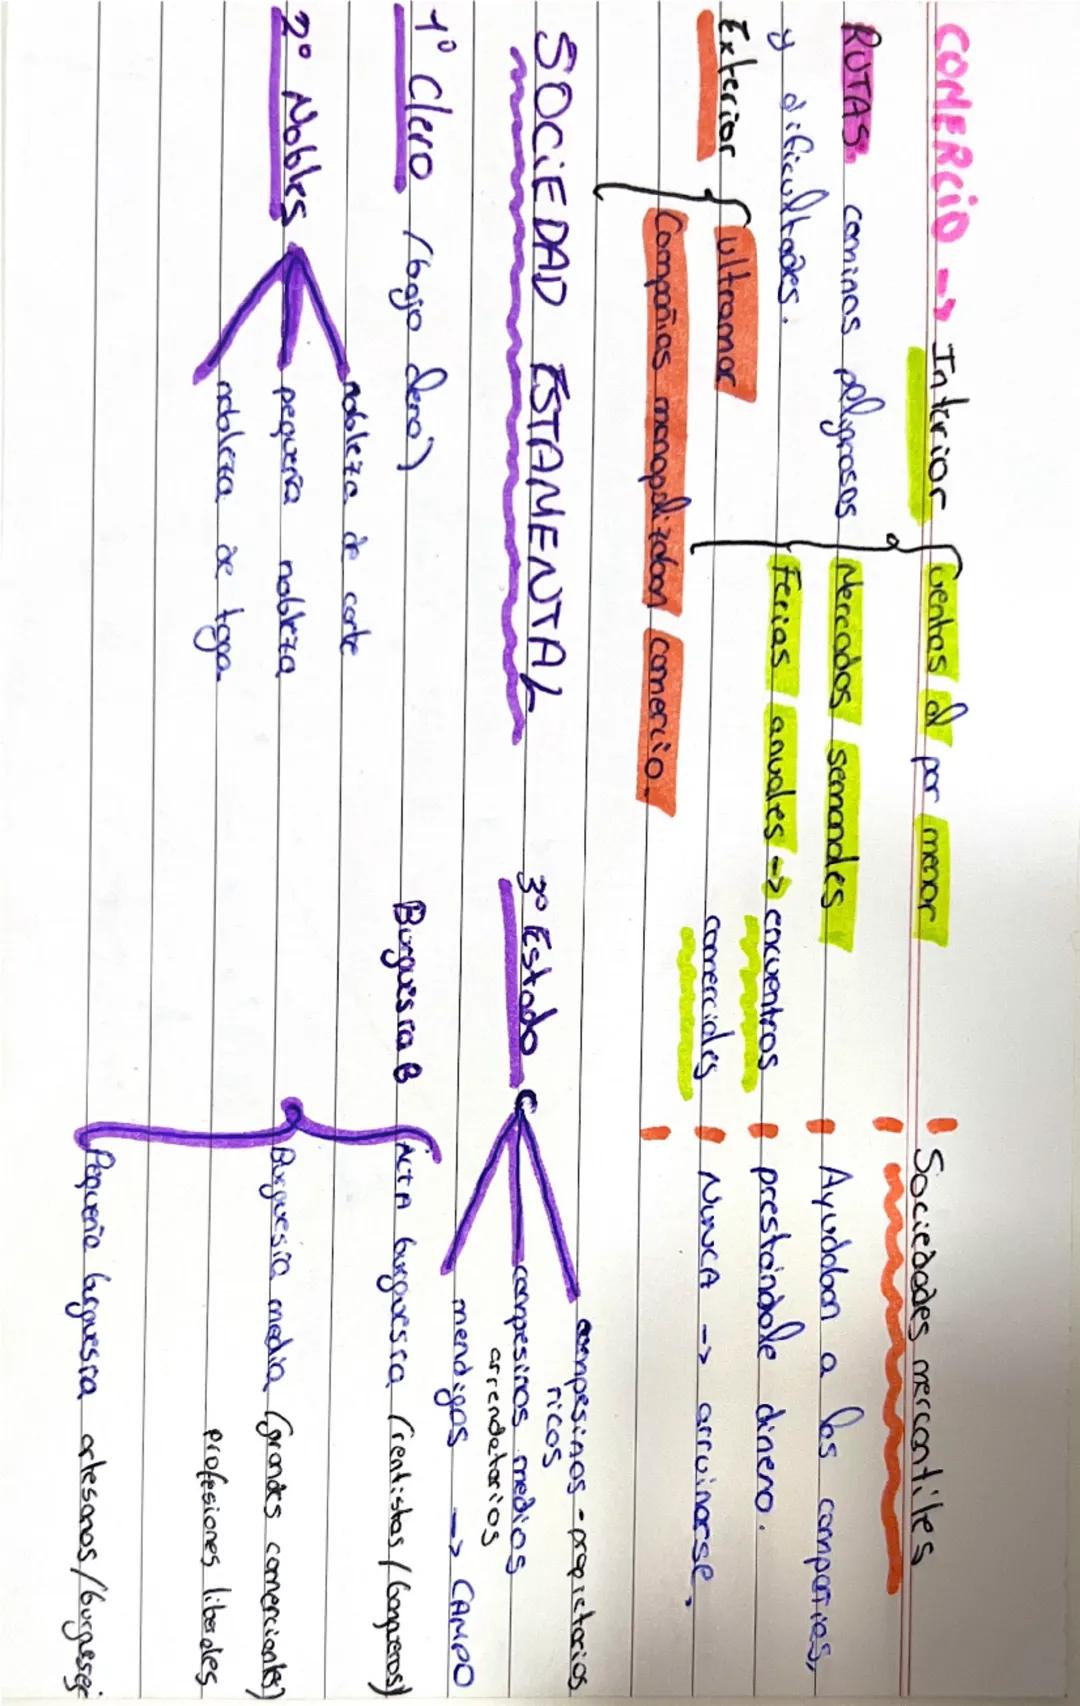 COMERCIO -> Interior
ventas al por menor
Mercados semanales
Ferias anuales -> encuentros
comerciales
RUTAS. caminos peligrosos
y dificultades.
Exterior
ultramar
Compañías monopolizaban comercio.
Sociedades mercantiles
Ayudaban a las compañías,
prestándole dinero.
NUNCA -> arruinarse.
SOCIEDAD ESTAMENTAL
1º Clero (bajo clero)
2º Nobles
nobleza de corte
pequeña nobleza
nobleza de toga
3º Estado
campesinos - propietarios
ricos
campesinos medios
arrendatarios
mendigos -> CAMPO
Burguesía B
ALTA burguesía (rentistas / banqueros)
Burguesía media (grandes comerciantes)
profesiones liberales
Pequeña burguesía artesanos /